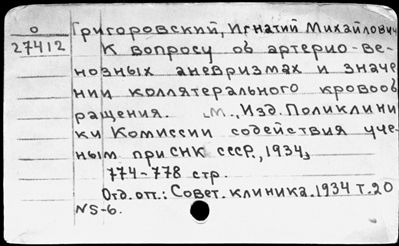 О
27412
Григоровский, Игнатий Михайлович
К вопросу об артерио-ве-
нозных аневризмах и значе
нии коллятерального кровооб
ращения. М., Изд. Поликлини
ки Комиссии содействия уче-
ным при СНК СССР, 1934,
774-778 стр.
Отд. отт.: Совет. клиника. 1934 Т. 20
NS-6.